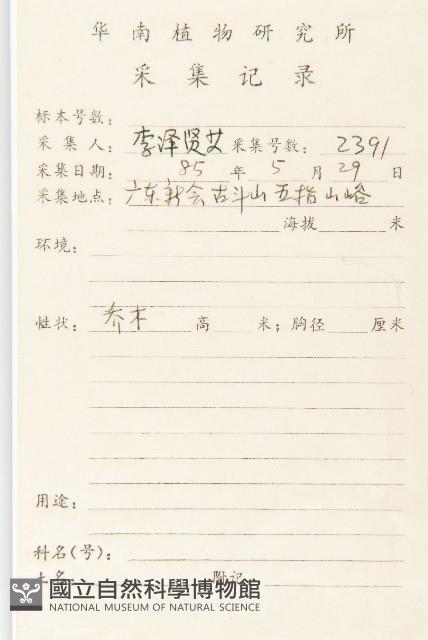 华南植物研究所
采集记录
标本号数：
采集人：李泽贤 采集号数：2391
采集日期：85年5月29日
采集地点：广东新会古斗山五指山峪
海拔 米
环境：
性状：乔木 高 米；胸径 厘米
用途：
科名(号)：
土名： 附记
國立自然科學博物館
NATIONAL MUSEUM OF NATURAL SCIENCE